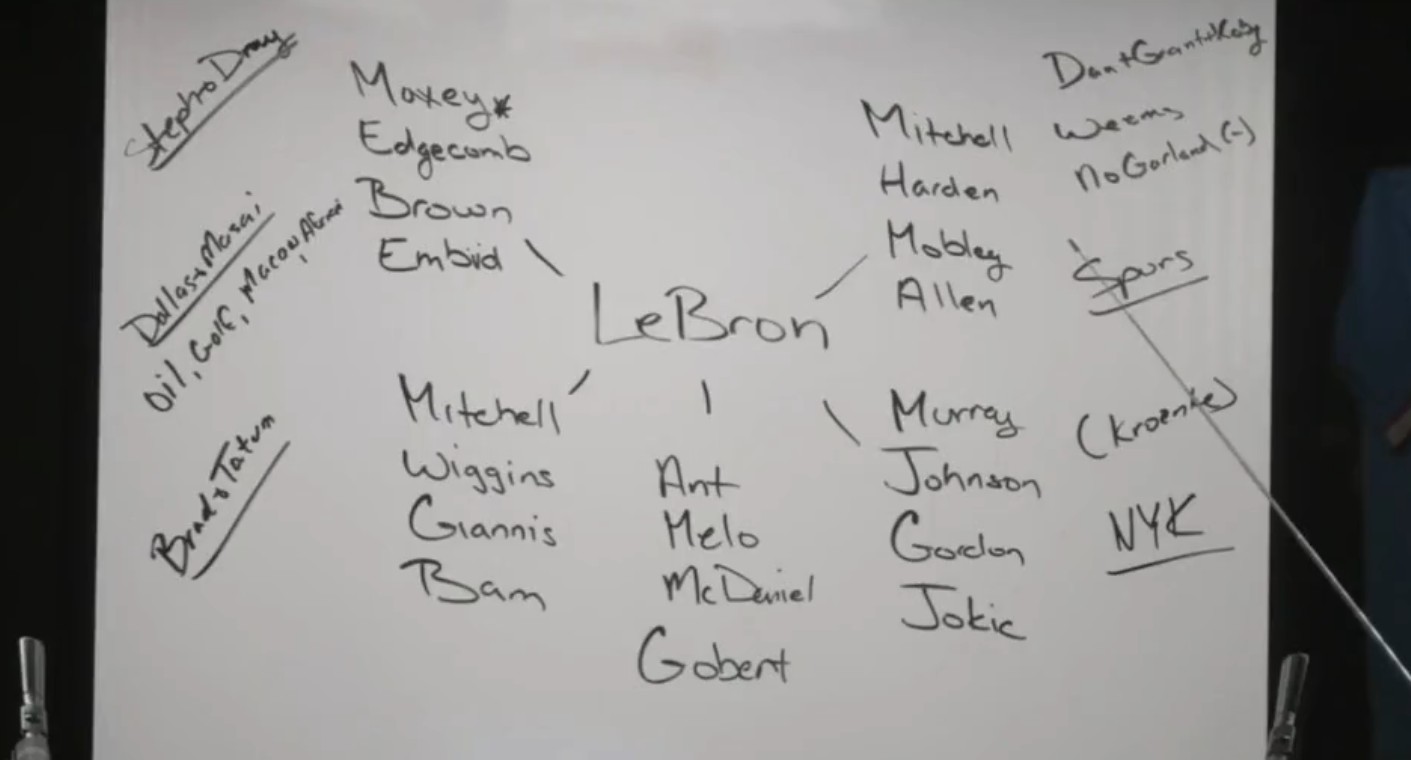 Steph&Dray
Dallas&Masai
Oil, Golf, Macon, Afreni
Brad&Tatum
Maxey*
Edgecomb
Brown
Embiid
LeBron
Mitchell
Harden
Mobley
Allen
Dan+Grant+Koby
Weems
No Garland (-)
Spurs
Mitchell
Wiggins
Giannis
Bam
Ant
Melo
McDaniel
Gobert
Murray
Johnson
Gordon
Jokic
(Kroenke)
NYK